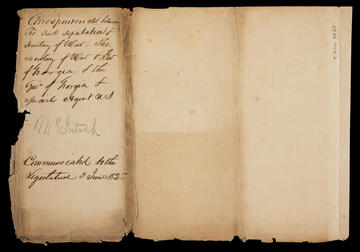 Correspondence between
the Creek deputation &
Secretary of War - The
Secretary of War & Gov
of Georgia & the
Gov of Georgia &
Special Agent U.S.
McIntosh
Communicated to the
Legislature 3 June 1825